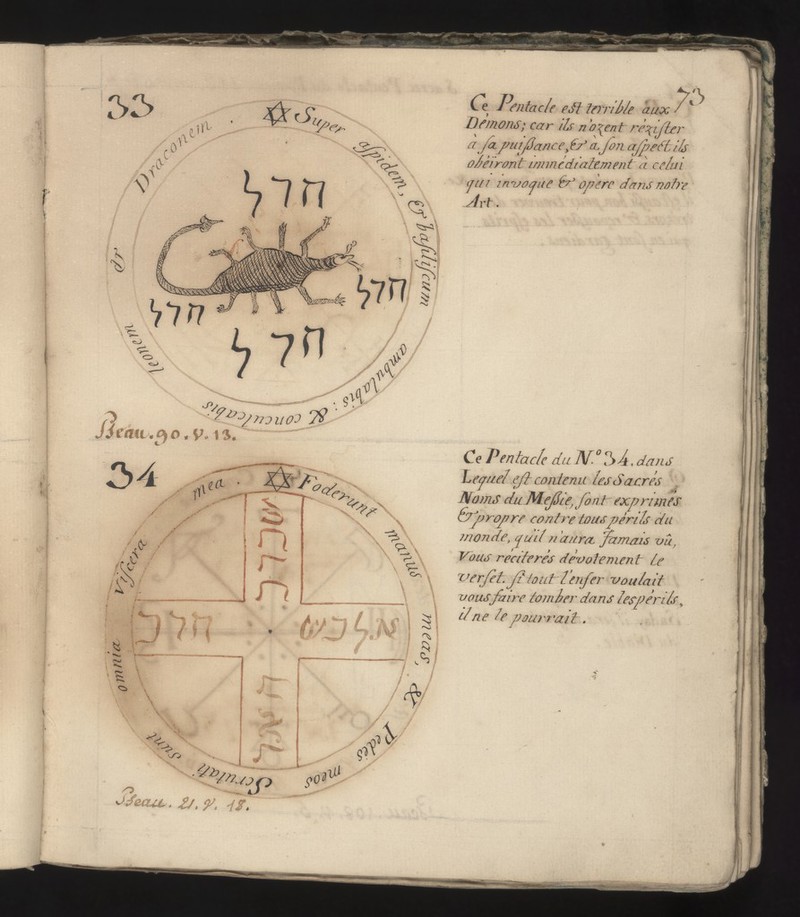 73
33
Super aſpidem, & baſiliſcum ambulabis: & conculcabis leonem dr Draconem.
חדל
חדל
חדל
חדל
Beau. 90. V. 13.
Ce Pentacle eſt terrible aux
Démons; car ils n'ozent réziſter
à ſa puiſsance, & à ſon aſpect ils
obéiront immédiatement à celui
qui invoque & opère dans notre
Art.
34
Foderunt manus meas, & Pedes meos Scrutati sunt omnia Viſcera mea.
Beau. 21. V. 18.
Ce Pentacle du N.º 34. dans
Lequel eſt contenu les Sacrés
Noms du Meſsie, ſont exprimés
& propre contre tous périls du
monde, qu'il n'aura Jamais vû,
Vous réciterés dévotement Le
verſet. ſi tout l'enfer voulait
vous faire tomber dans les périls,
il ne le pourrait.